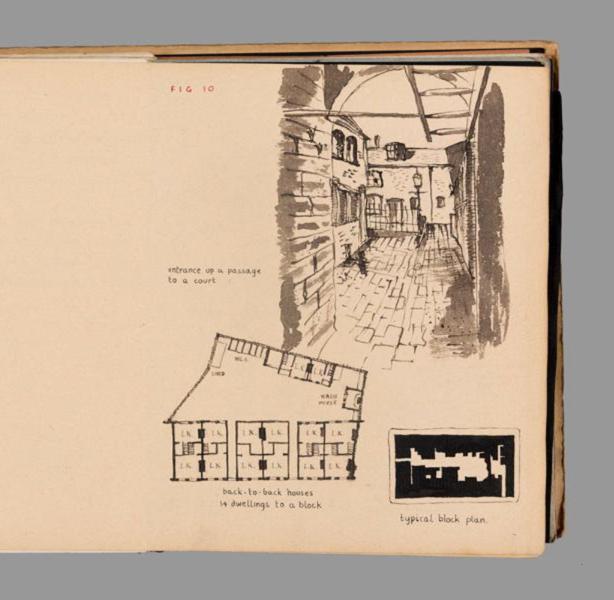 FIG 10
entrance up a passage
to a court
SHED
W.C.S
L.K. L.K.
WASH
HOUSE
L.K. L.K. L.K. L.K. L.K. L.K.
L.K. L.K. L.K. L.K. L.K. L.K.
back-to-back houses
14 dwellings to a block
typical block plan.